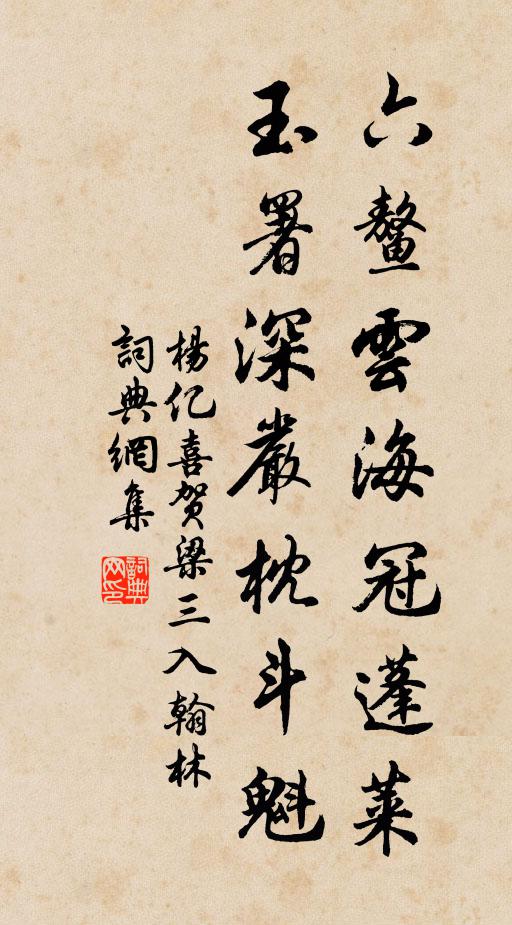 六鼇雲海冠蓬萊
玉署深嚴枕斗魁
楊亿喜贺梁三入翰林
詞典網集
詞典网印